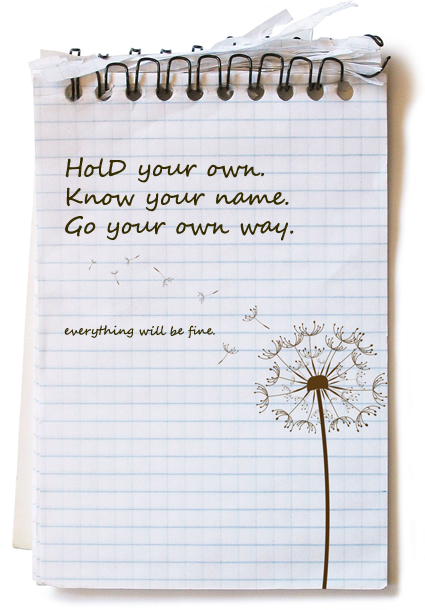 HolD your own.
Know your name.
Go your own way.
everything will be fine.